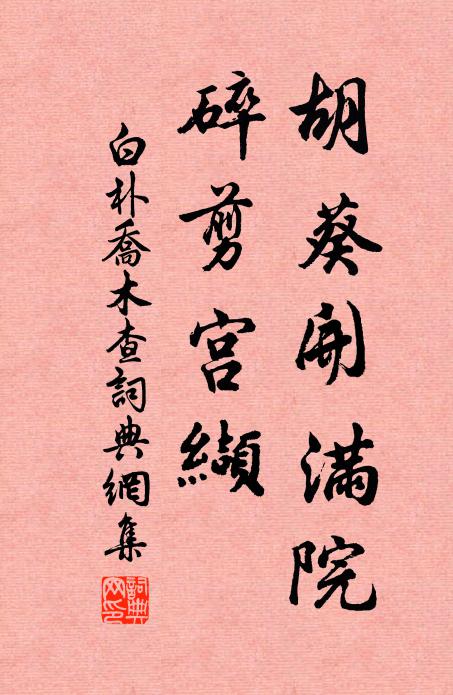 胡葵開滿院
碎剪宫纈
白朴喬木查詞典網集
詞典網印